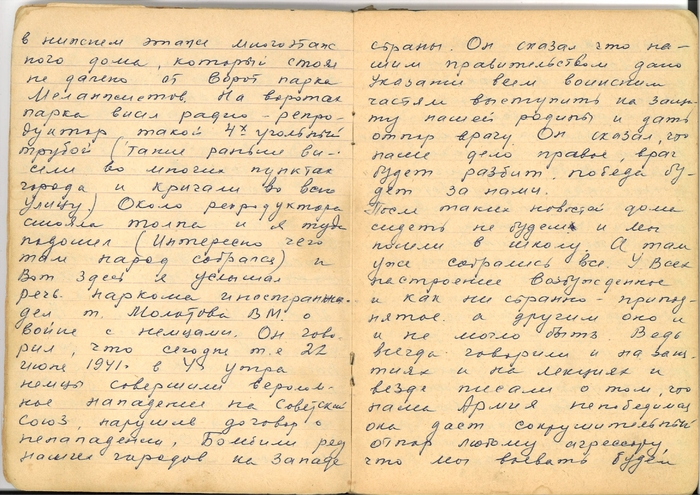 в нижнем этаже многоэтаж
ного дома, который стоял
не далеко от Ворот парка
Металлистов. На воротах
парка висел радио-репро-
дуктор такой 4х угольный
трубой (такие раньше ви-
сели во многих пунктах
города и кричали во всю
улицу) Около репродуктора
стояла толпа и я туда
подошел (Интересно чего
там народ собрался) и
Вот здесь я услышал
речь наркома иностранных
дел т. Молотова ВМ. о
войне с немцами. Он гово-
рил, что сегодня т.е 22
июня 1941г в 4ч утра
немцы совершили веролом-
ное нападение на Советский
Союз, нарушив договор о
ненападении, Бомбили ряд
наших городов на западе
страны. Он сказал что на-
шим правительством дано
указание всем воинским
частям выступить на защи
ту нашей родины и дать
отпор врагу. Он сказал, что
наше дело правое, враг
будет разбит, победа бу-
дет за нами.
После таких новостей дома
сидеть не будешь и мы
пошли в школу. А там
уже собрались все. У Всех
настроение возбужденное
и как ни странно - припод
нятое. а другим оно и
и не могло быть. Ведь
всегда говорили и на заня
тиях и на лекциях и
везде писали о том, что
наша Армия непобедимая
она даст сокрушительный
отпор любому агрессору,
что мы воевать будем